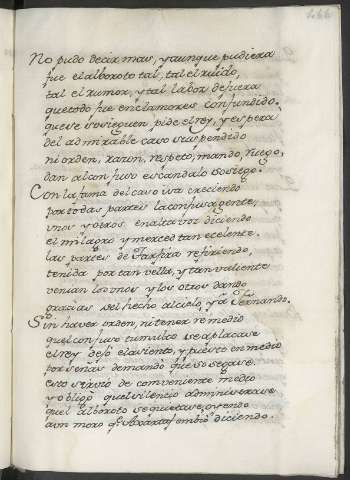 166
No pudo decir mas, y aunque pudiera
fue el alboroto tal, tal el ruido,
tal el rumor, y tal la voz de fuera
que todo fue en clamores confundido.
que se sosieguen pide el rey, y espera
del admirable caso suspendido
ni orden, razon, respeto, mando, ruego,
dan al confuso escandalo sosiego.
Con la fama del caso iva creciendo
por todas partes la confusa gente,
unos y otros en alta voz diciendo
el milagro y merced tan ecelente.
las partes de Tarfira refiriendo,
tenida por tan vella, y tan valiente
venian los unos y los otros dando
gracias del hecho al cielo, y a Fernando.
Sin haver orden, ni tener remedio
quel confuso tumulto se aplacase
el rey dejo el asiento, y puesto en medio
por señas demandò que se sosegase.
esto sirviò de conveniente medio
y obligò quel silencio administrase
quel alboroto se quietase, oyendo
a un moro que embiò diciendo.